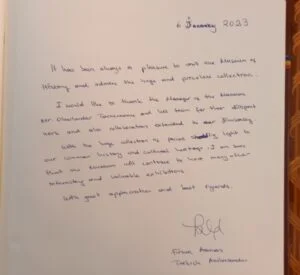 6 January 2023
It has been always a pleasure to visit the Museum of
History and admire the huge and priceless collection.
I would like to thank the Manager of the Museum
and his team for their diligent
work and also collaboration extended to our Embassy
With the huge collection of period shedding light to
our common history and cultural heritage, I am sure
that the museum will continue to have many other
interesting and valuable exhibitions.
With great appreciation and best regards.
Turkish Ambassador